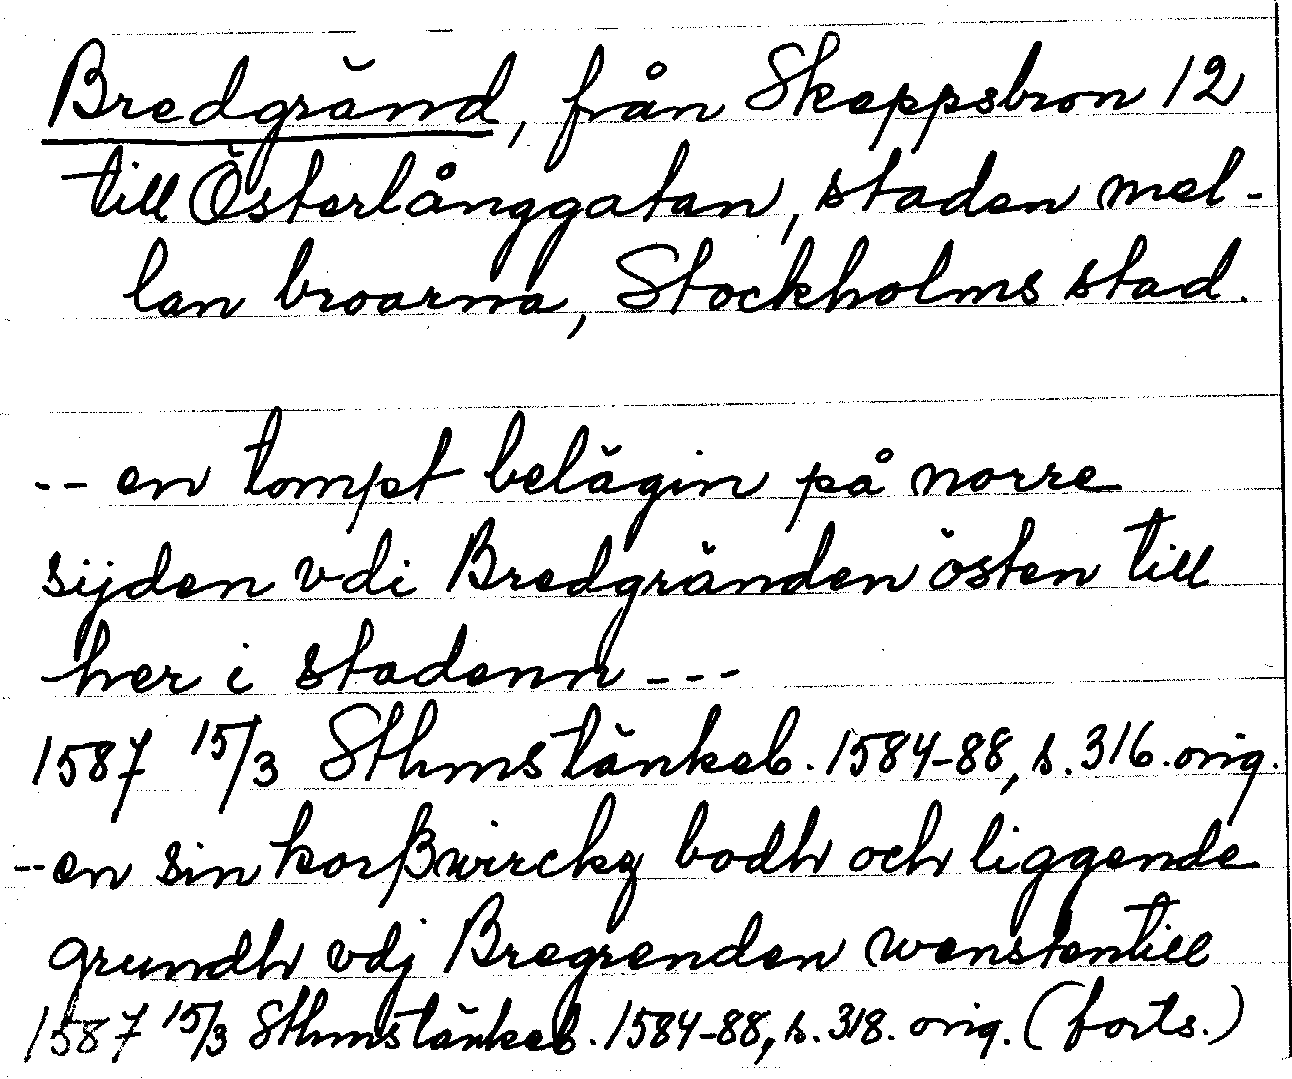 Bredgränd, från Skeppsbron 12
till Österlånggatan, staden mel-
lan broarna, Stockholms stad.
-- en tompt belägin på norre
sijden vdi Bredgränden östen till
her i stadenn ---
1587 15/3 Sthmstänkeb. 1584-88, s. 316. orig.
-- en sin korßwirckz bodh och liggende
grundh vdj Bregrenden wenstentill
1587 15/3 Sthmstänkeb. 1584-88, s. 318. orig. (forts.)